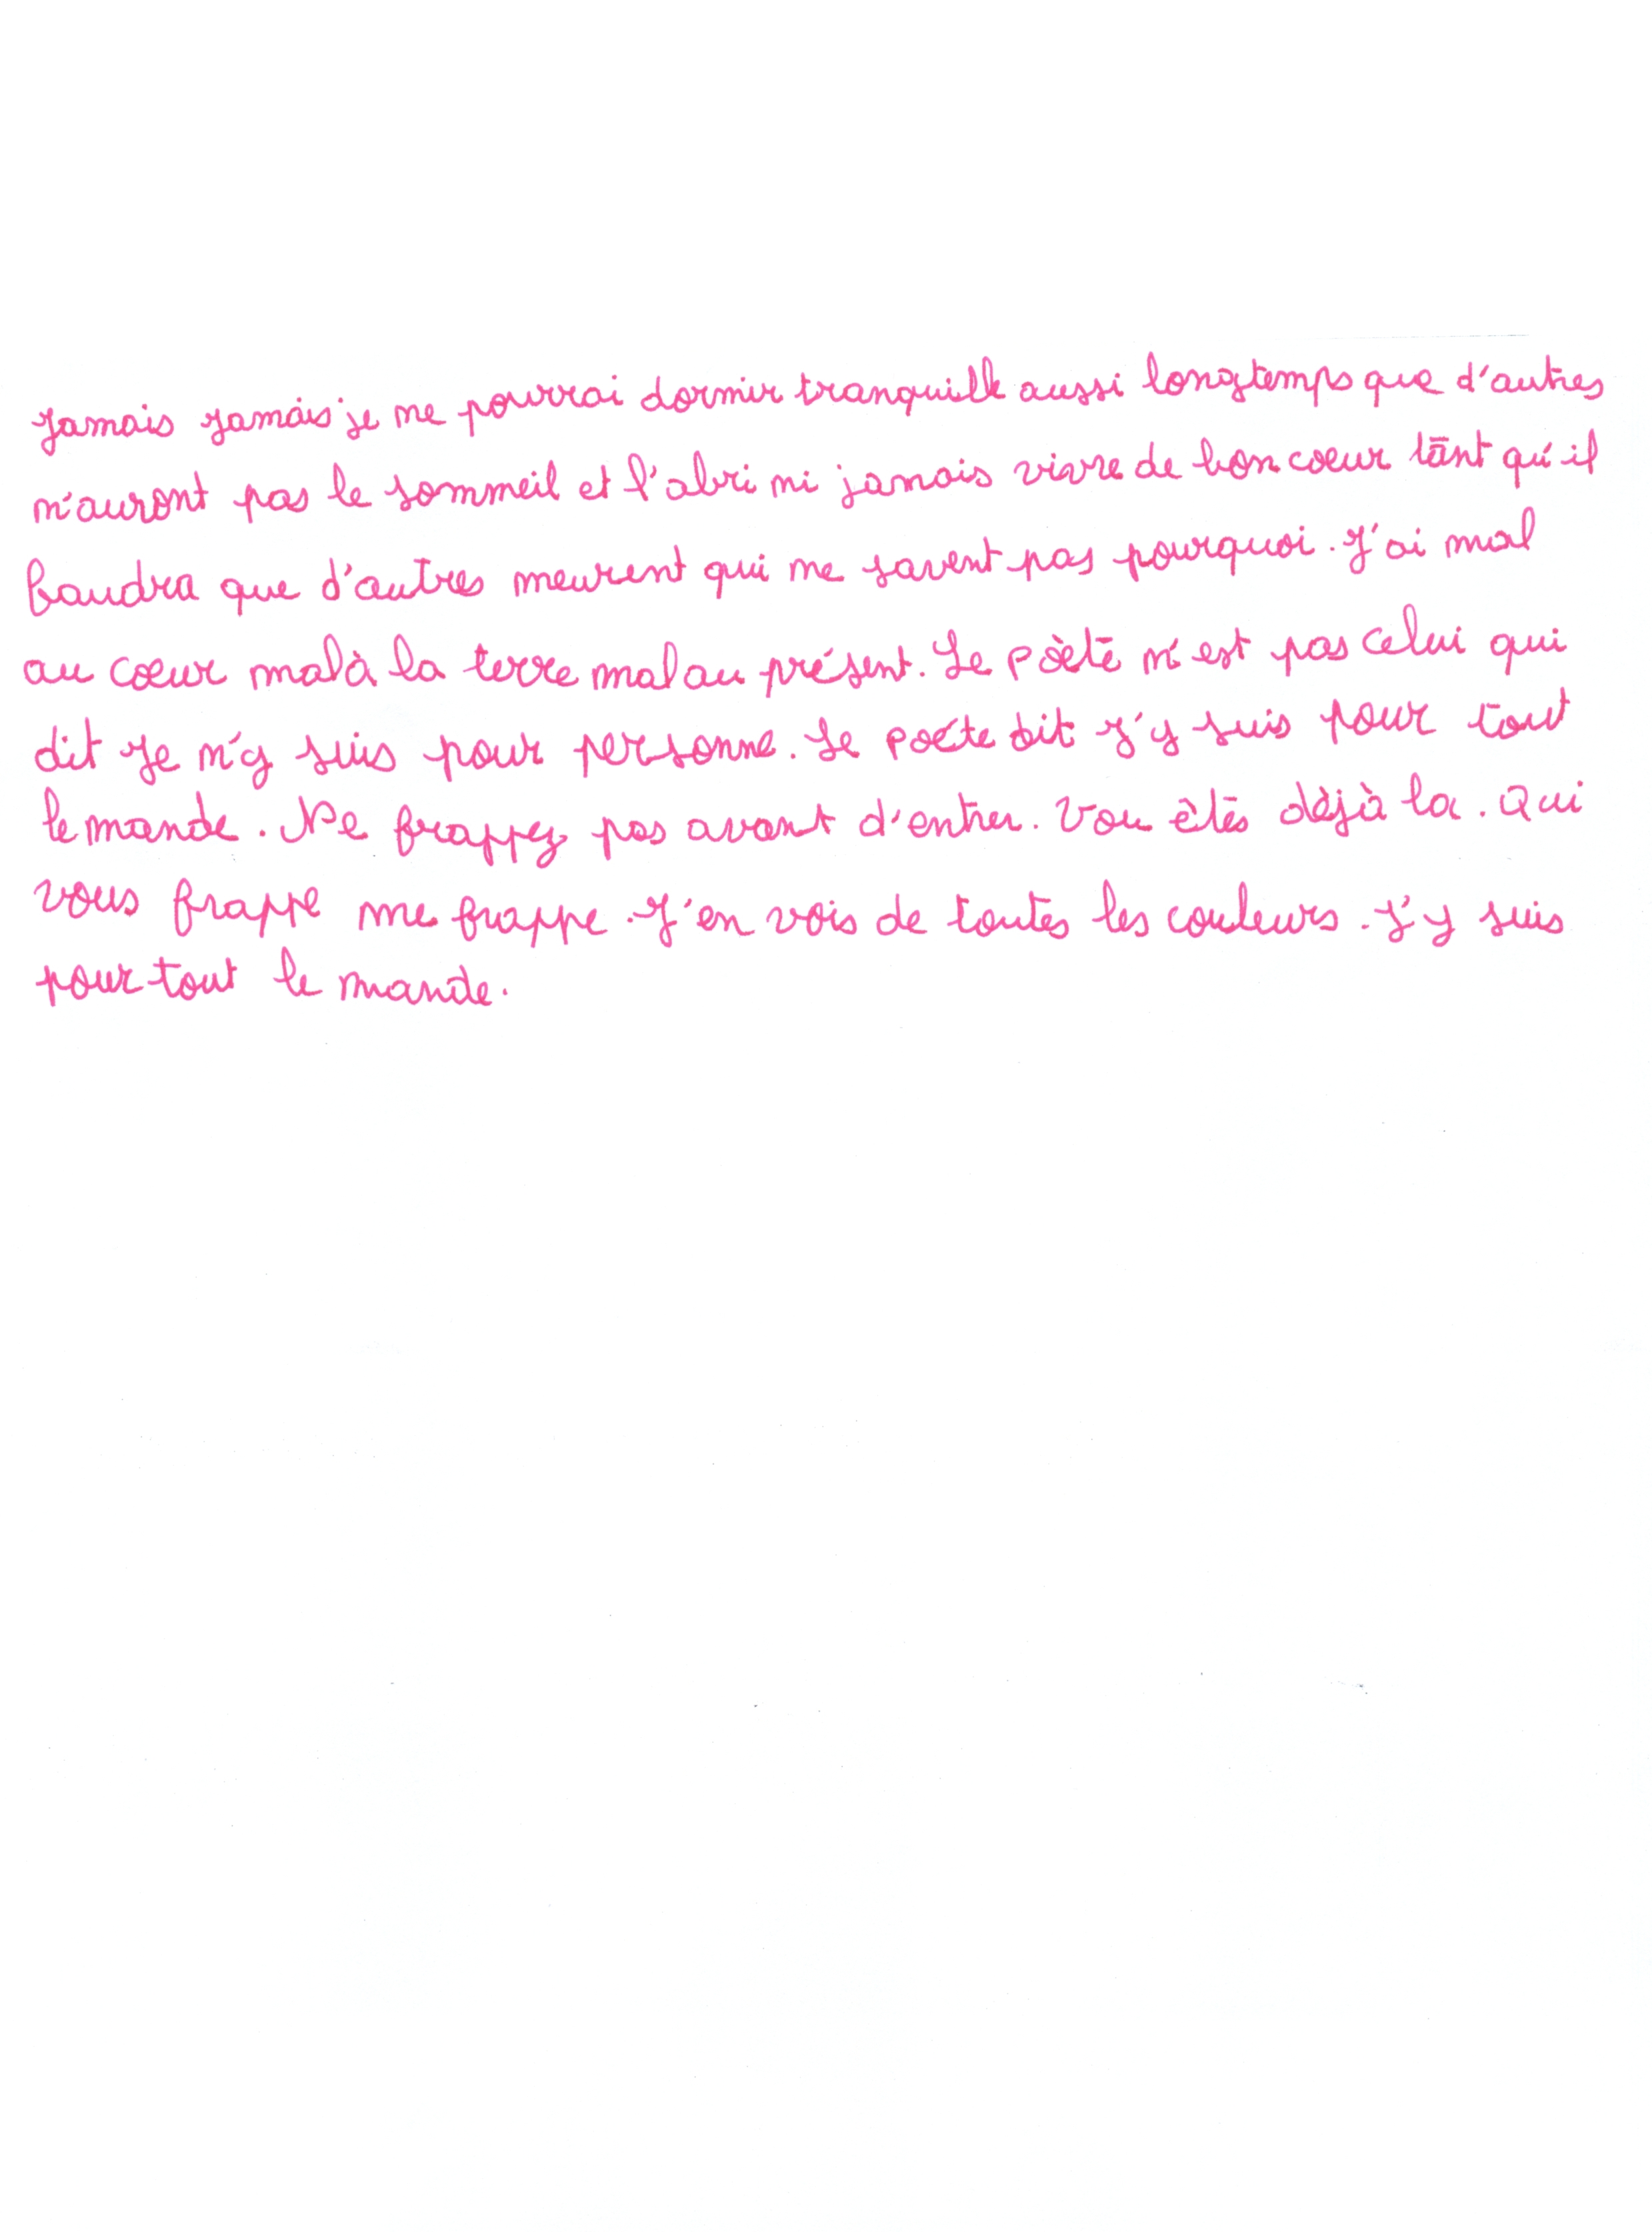 Jamais jamais je ne pourrai dormir tranquille aussi longtemps que d'autres
n'auront pas le sommeil et l'abri ni jamais vivre de bon coeur tant qu'il
faudra que d'autres meurent qui ne savent pas pourquoi. J'ai mal
au coeur mal à la terre mal au présent. Le poète n'est pas celui qui
dit Je n'y suis pour personne. Le poéte dit J'y suis pour tout
le monde. Ne frappez pas avant d'entrer. Vou êtes dèjà la. Qui
vous frappe me frappe. J'en vois de toutes les couleurs. J'y suis
pour tout le monde.